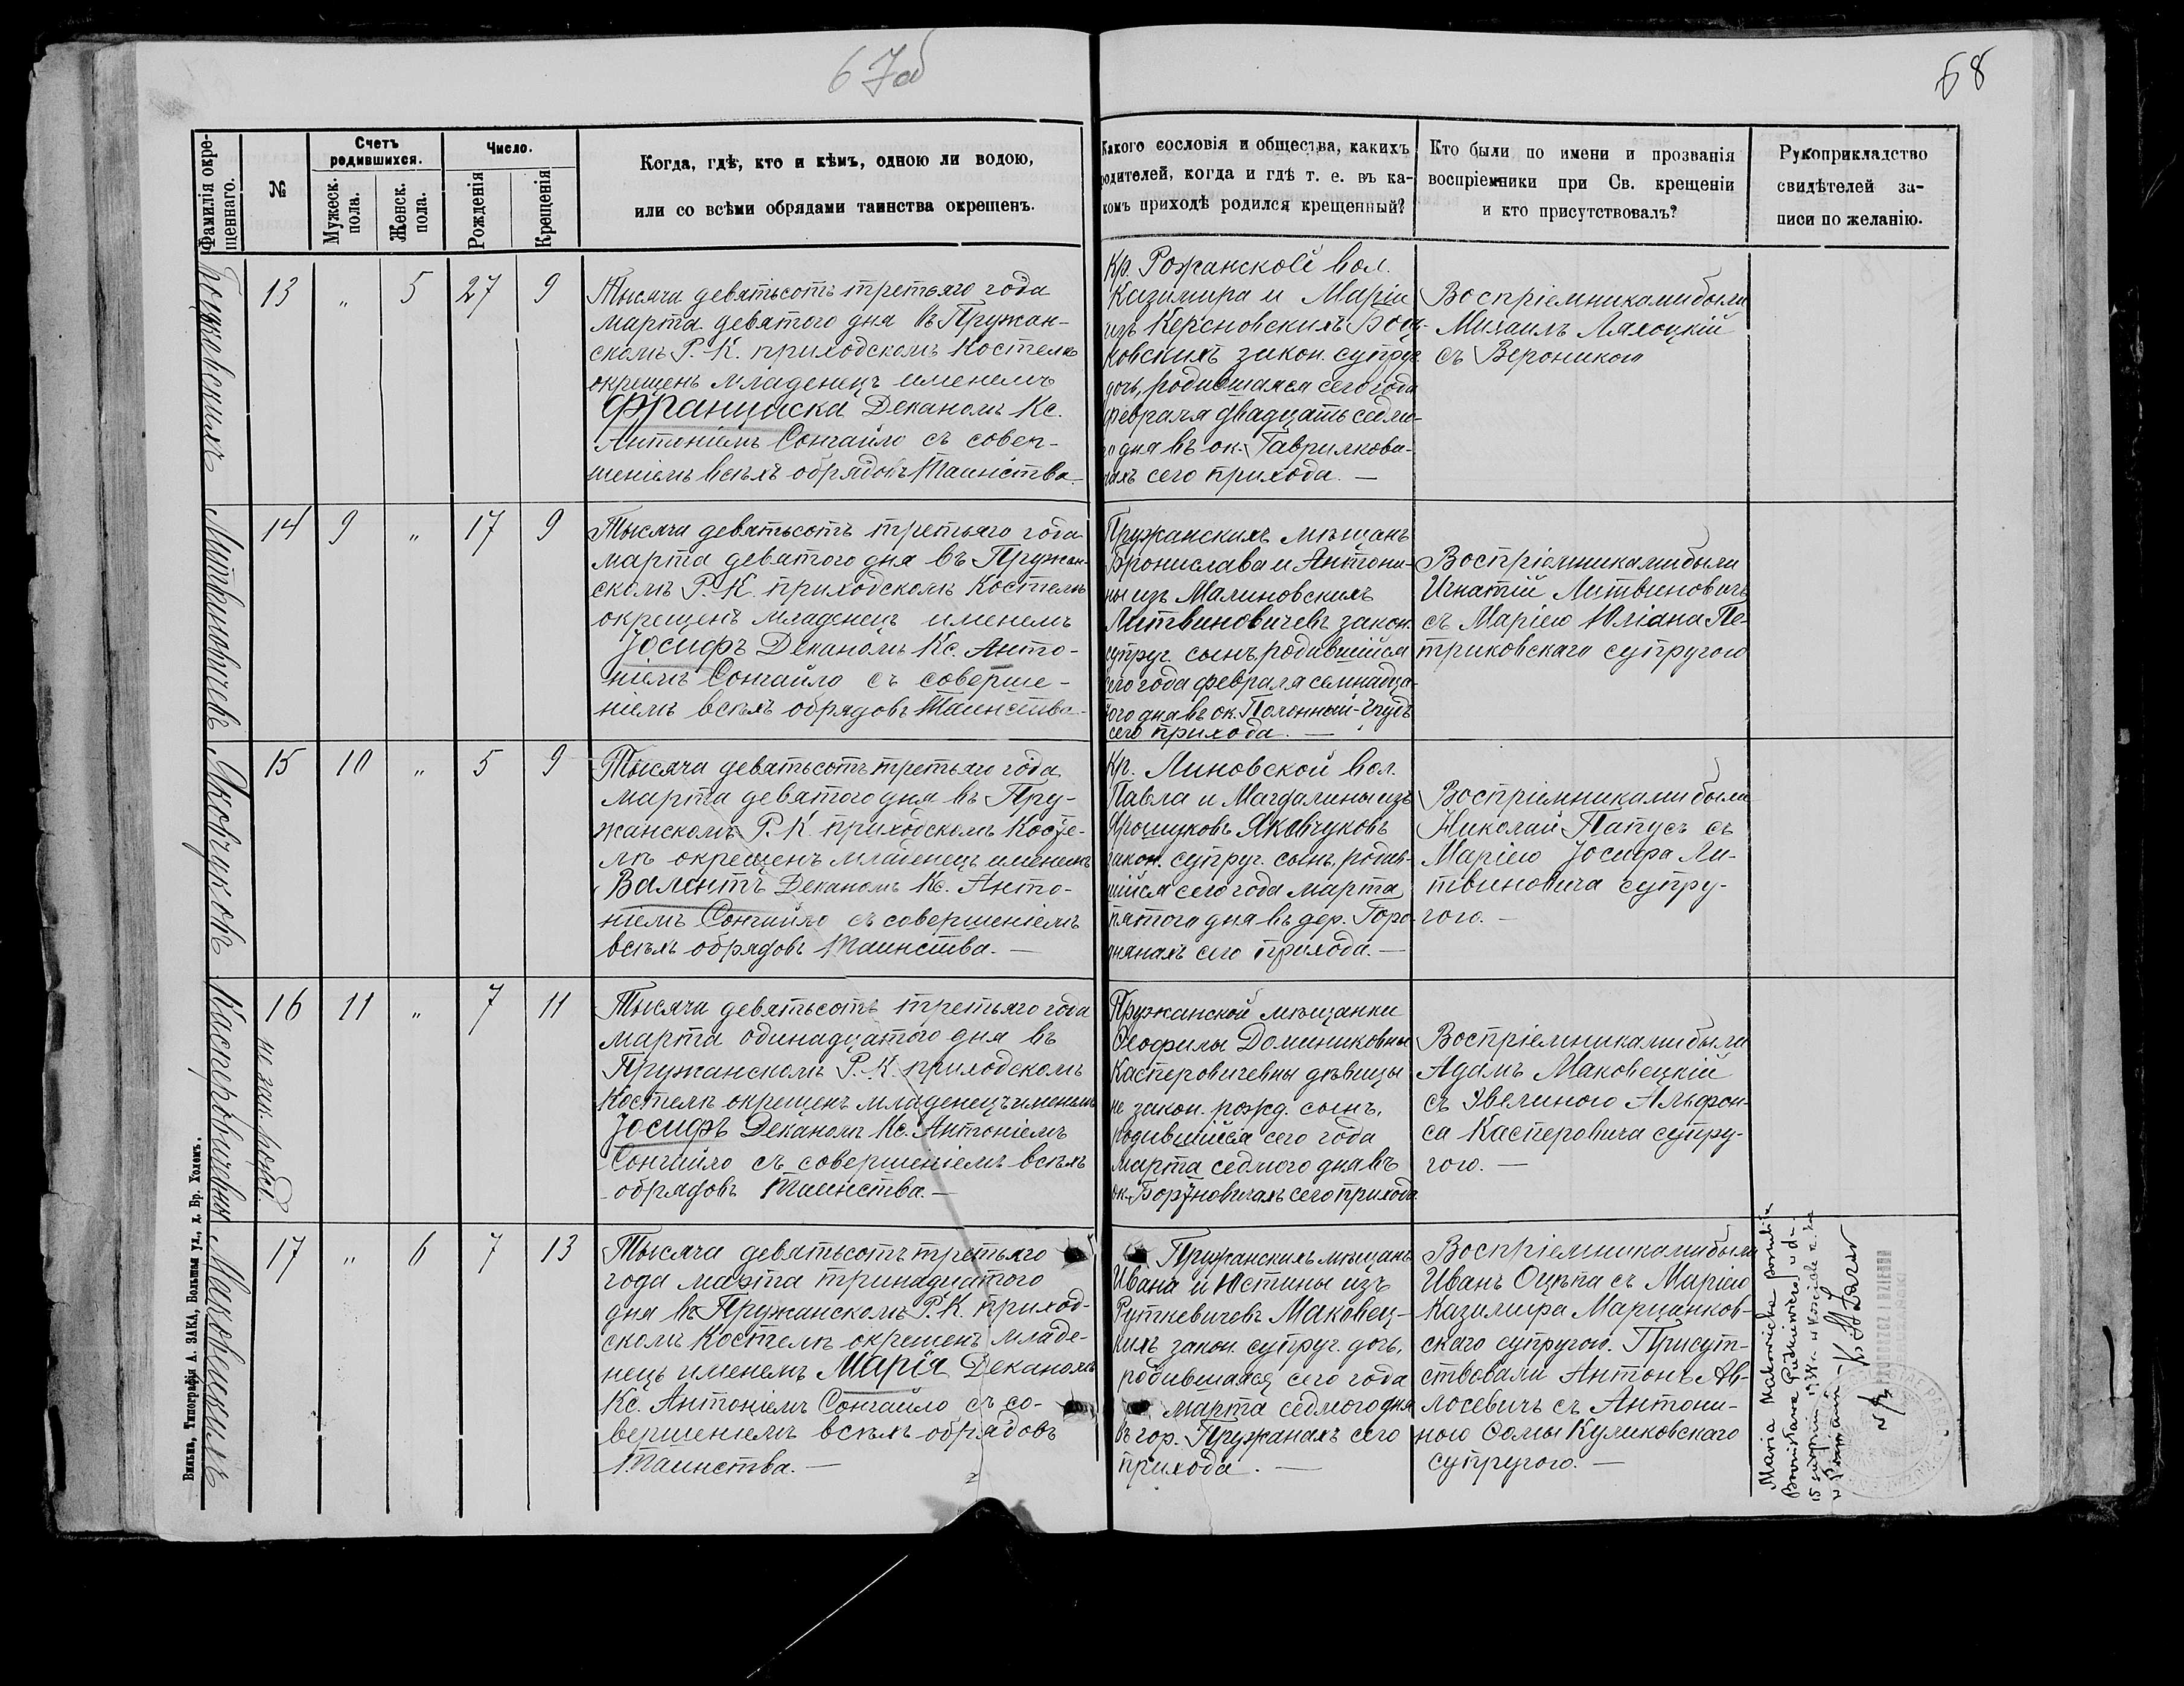 67об
68
Фамилія окре-
щеннаго.
№
Счетъ
родившихся.
Мужеск.
пола.
Женск.
пола.
Число.
Рожденія
Крещенія
Когда, гдѣ, кто и кѣмъ, одною ли водою,
или со всѣми обрядами таинства окрещенъ.
Какого сословія и общества, какихъ
родителей, когда и гдѣ т. е. въ ка-
комъ приходѣ родился крещенный?
Кто были по имени и прозванія
воспріемники при Св. крещеніи
и кто присутствовалъ?
Рукоприкладство
свидѣтелей за-
писи по желанію.
13 " 5 27 9
Тысяча девятьсотъ третьяго года
марта девятого дня въ Пружан-
скомъ Р. К. приходскомъ Костелѣ
окрещенъ младенецъ именемъ
Франциска Деканомъ Кс.
Антоніемъ Сонгайло съ совер-
шеніемъ всѣхъ обрядовъ Таинства.
Кр. Рожанской вол.
Казимира и Маріи
изъ Керсновскихъ
ковскихъ закон. супруг.
дочь, родившаяся сего года
февраля двадцать седмо-
го дня въ ок. Гаврилкова-
чахъ сего прихода. —
Воспріемниками были
Михаилъ Ляхоцкій
съ Вероникою
Литвиновичевъ
14 9 " 17 9
Тысяча девятьсотъ третьяго года
марта девятого дня въ Пружан-
скомъ Р. К. приходскомъ Костелѣ
окрещенъ младенецъ именемъ
Іосифъ Деканомъ Кс. Анто-
ніемъ Сонгайло съ соверше-
ніемъ всѣхъ обрядовъ Таинства.
Пружанскихъ мѣщанъ
Бронислава и Антони-
ны изъ Малиновскихъ
Литвиновичевъ закон.
супруг. сынъ, родившійся
сего года февраля семнадца-
того дня въ ок. Полонный-Грудъ
сего прихода. —
Воспріемниками были
Игнатій Литвиновичъ
съ Маріею Юліана Пе-
триковскаго супругою
Яковчуковъ
15 10 " 5 9
Тысяча девятьсотъ третьяго года
марта девятого дня въ Пру-
жанскомъ Р. К. приходскомъ Косте-
лѣ окрещенъ младенецъ именемъ
Валентъ Деканомъ Кс. Анто-
ніемъ Сонгайло съ совершеніемъ
всѣхъ обрядовъ Таинства. —
Кр. Линовской вол.
Павла и Магдалины изъ
Ярошуковъ Яковчуковъ
закон. супруг. сынъ, родив-
шійся сего года марта
пятого дня въ дер. Горо-
днянахъ сего прихода. —
Воспріемниками были
Николай Папусъ съ
Маріею Іосифа Ли-
твиновича супру-
гою. —
Касперовичевны
16 11 " 7 11
не зак. рожд.
Тысяча девятьсотъ третьяго года
марта одинадцатого дня въ
Пружанскомъ Р. К. приходскомъ
Костелѣ окрещенъ младенецъ именемъ
Іосифъ Деканомъ Кс. Антоніемъ
Сонгайло съ совершеніемъ всѣхъ
обрядовъ Таинства —
Пружанской мѣщанки
Ѳеофилы Доминиковны
Касперовичевны дѣвицы
не закон. рожд. сынъ,
родившійся сего года
марта седмого дня въ
ок. сего прихода.
Воспріемниками были
Адамъ Маковецкій
съ Эвелиною Альфон-
са Касперовича супру-
гою. —
Маковецкихъ
17 " 6 7 13
Тысяча девятьсотъ третьяго
года марта тринадцатого
дня въ Пружанскомъ Р. К. приход-
скомъ Костелѣ окрещенъ младе-
нецъ именемъ Марія Деканомъ
Кс. Антоніемъ Сонгайло съ со-
вершеніемъ всѣхъ обрядовъ
Таинства. —
Пружанскихъ мѣщанъ
Ивана и Юстины изъ
Руткевичевъ Маковец-
кихъ закон. супруг. дочь,
родившаяся сего года
марта седмого дня
въ гор. Пружанахъ сего
прихода. —
Воспріемниками были
Иванъ Оцѣпа съ Маріею
Казимира Марцинков-
скаго супругою. Присут-
ствовали Антонъ Ав-
лосевичъ съ Антони-
ною Ѳомы Куликовскаго
супругою. —
Maria Makowiecka
Bronisława w d.
15 sierpnia w Kościele
Вильна, Типографія А. ЗАКА, Большая ул., д. Бр. Холемъ.